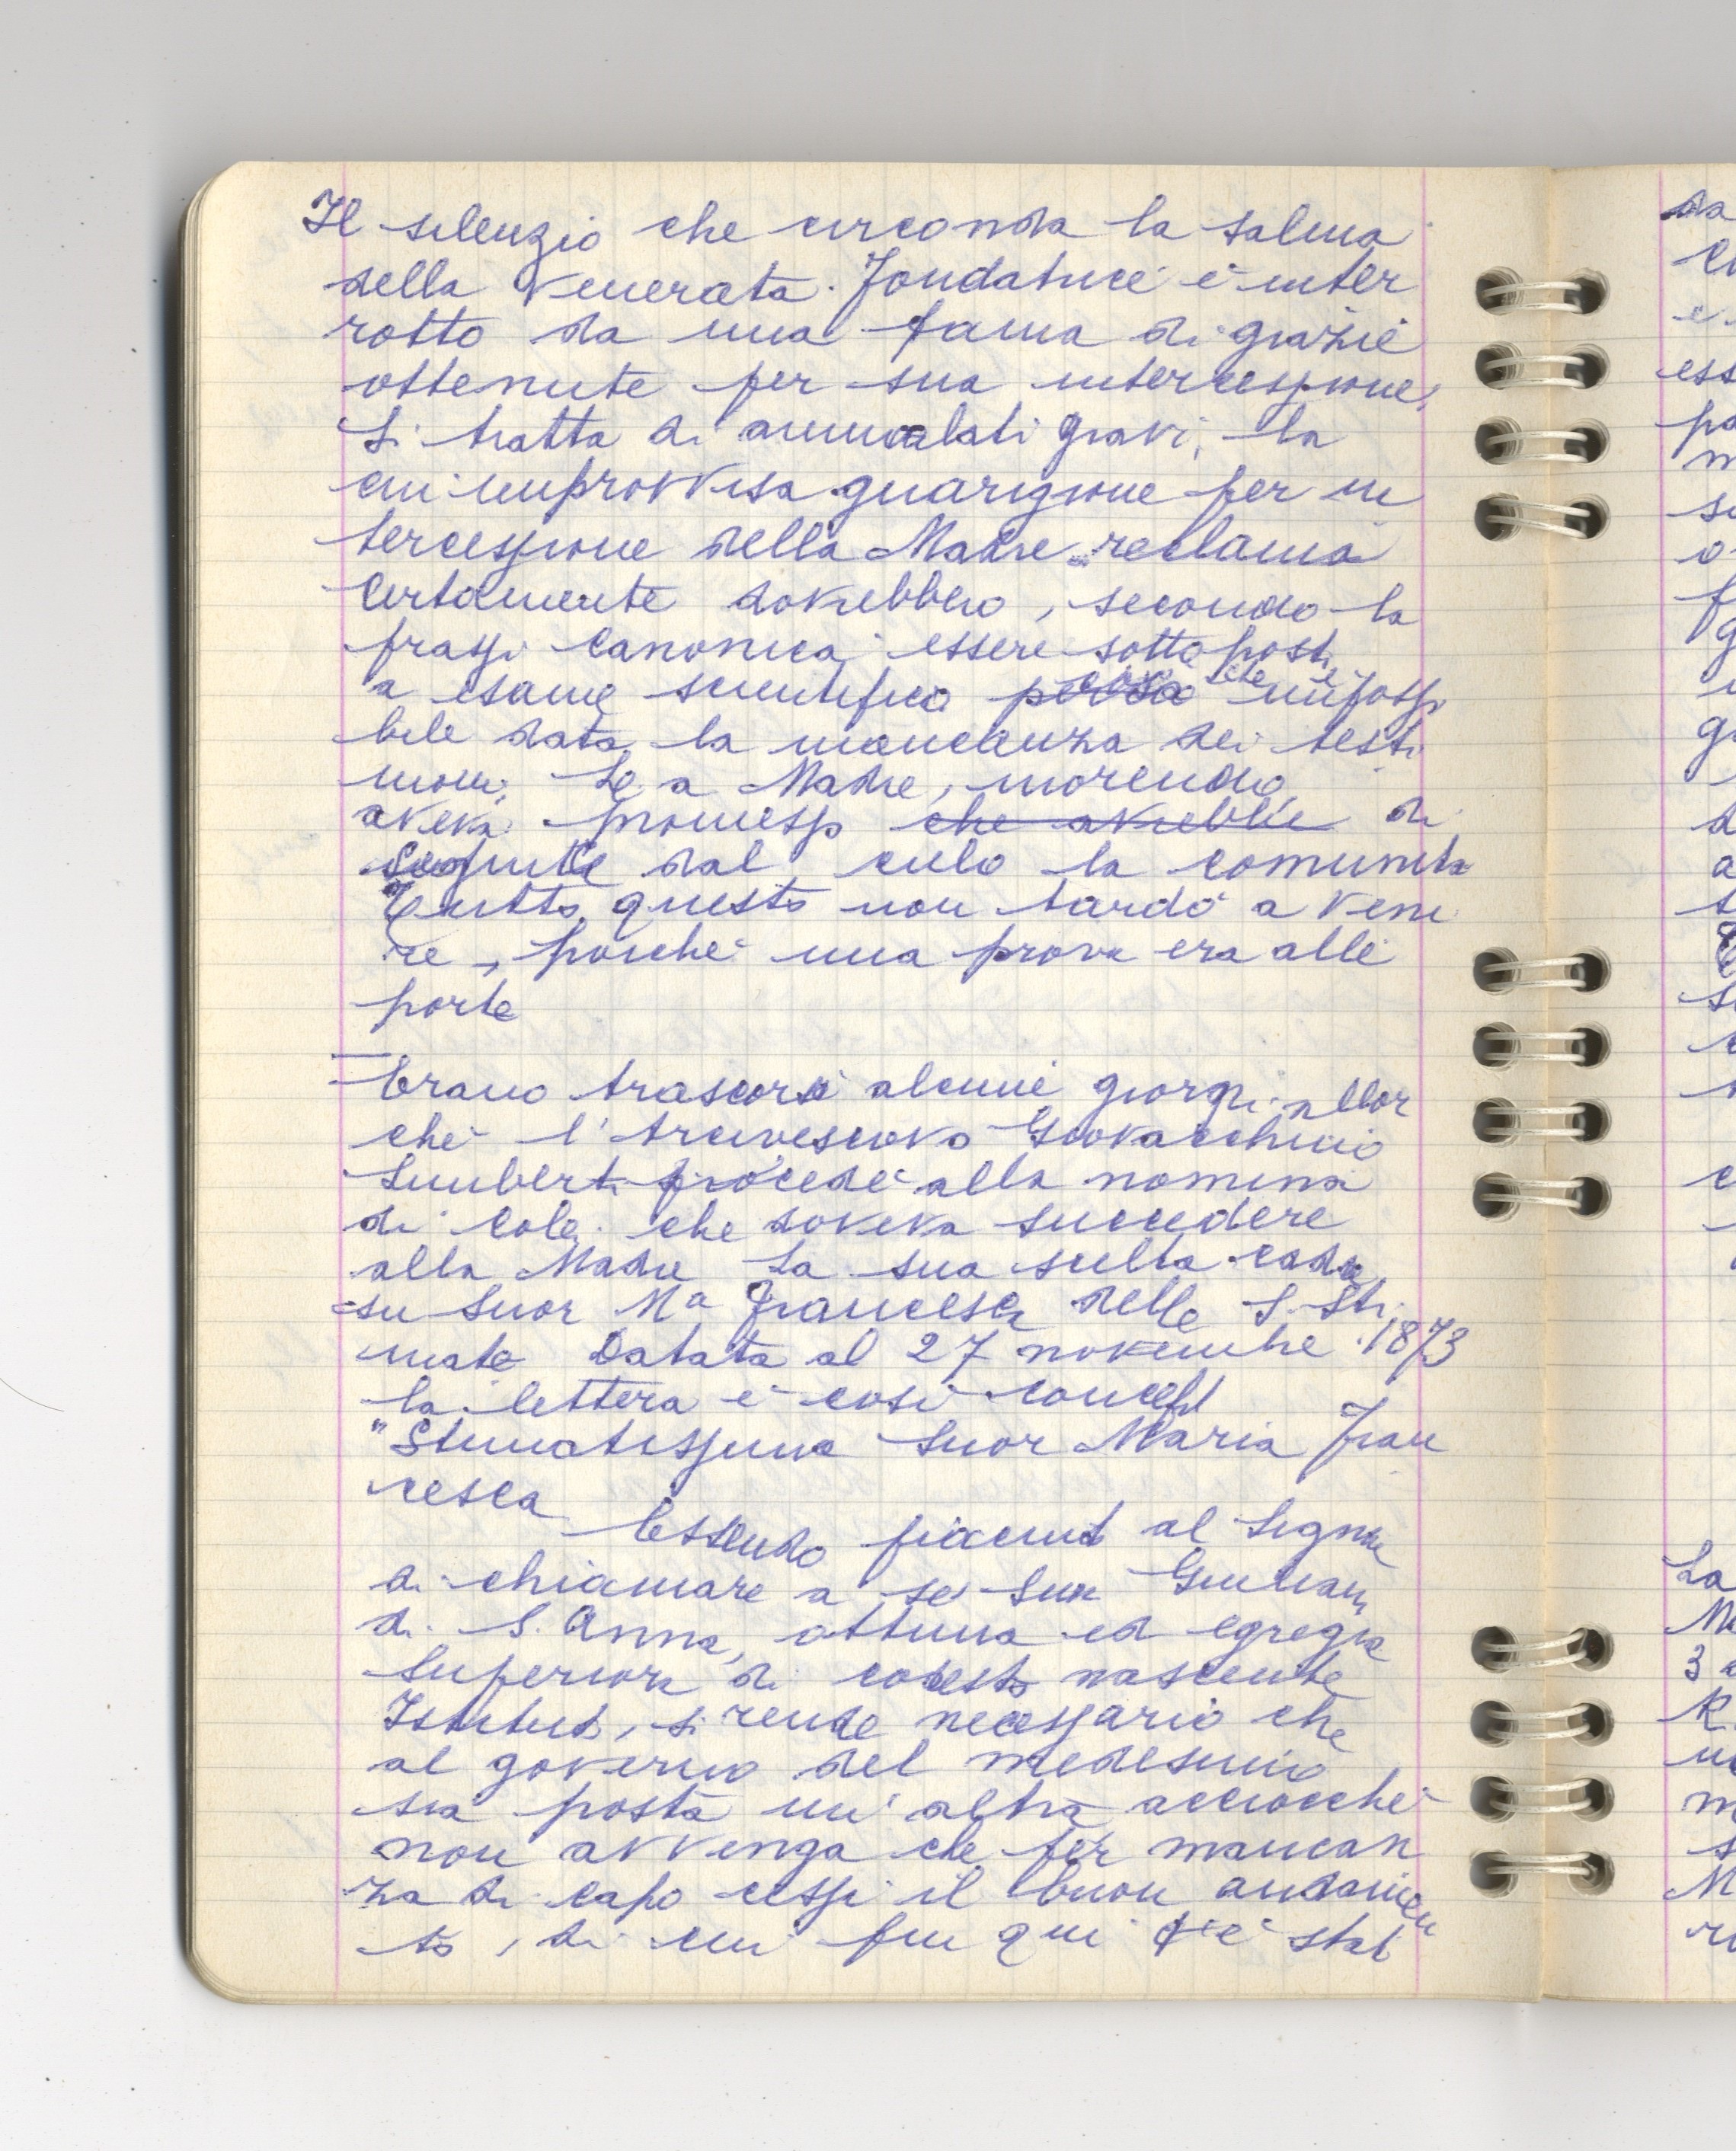 Il silenzio che circonda la salma
della Venerata Fondatrice è inter
rotto da una fama di grazie
ottenute per sua intercessione.
Si tratta di ammalati gravi, la
cui improvvisa guarigione per in
tercessione della Madre reclama
Certamente dovrebbero, secondo la
prassi canonica essere sottoposti
a esame scientifico cosa che è impossi
bile data la mancanza dei testi
moni. La Madre, morendo,
aveva promesso che avrebbe di
seguire dal cielo la comunità
Tutto questo non tardò a veni
re, poiché una prova era alle
porte
Erano trascorsi alcuni giorni allor
ché l'Arcivescovo Giovacchino
Limberti procedé alla nomina
di Colei che doveva succedere
alla Madre La sua scelta cadde
su Suor Ma Francesca delle S. Sti
mate Datata al 27 novembre 1873
la lettera è così concepl
"Stimatissima Suor Maria Fran
cesca
Essendo piaciuto al Signore
di chiamare a sé Suor Giuliana
di S. Anna, ottima ed egregia
Superiora di codesto nascente
Istituto, si rende necessario che
al governo del medesimo
sia posta un'altra acciocché
non avvenga che per mancan
za di capo cessi il buon andamen
to, di cui fin qui s'è stat